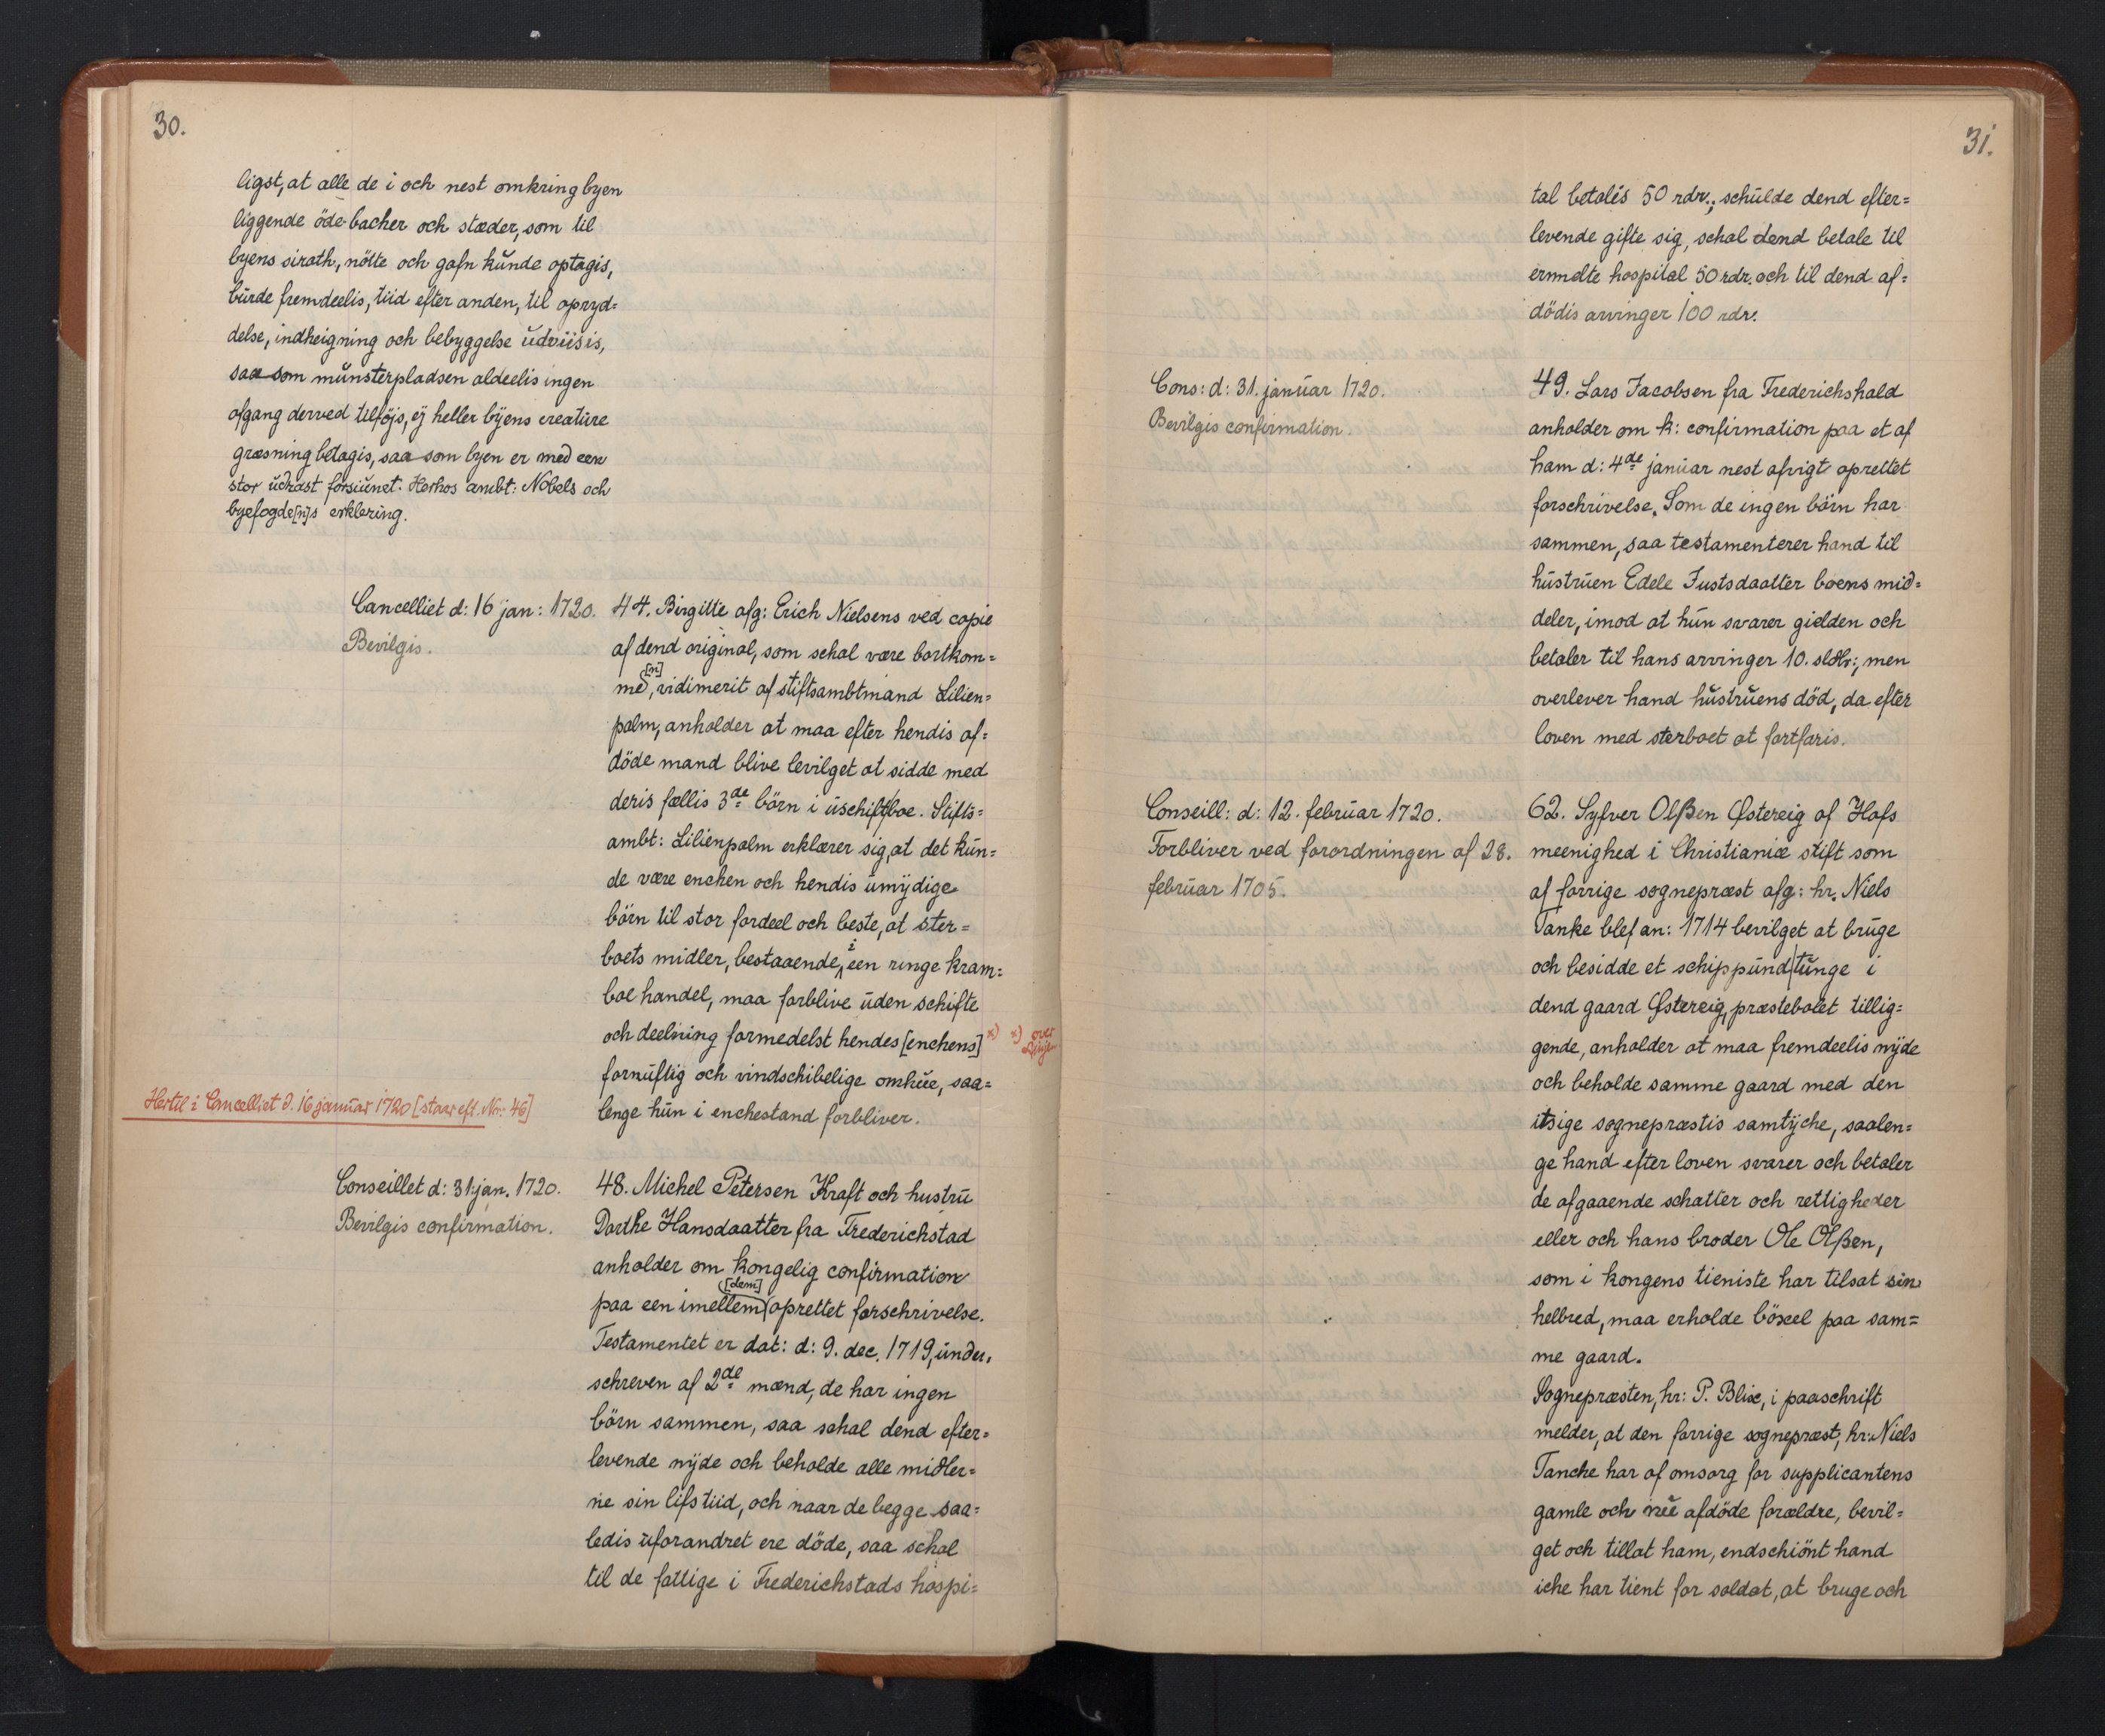 30.
ligst, at alle de i och nest omkring byen
liggende öde bacher och stæder, som til
byens sirath, nötte och gafn kŭnde optagis,
bŭrde fremdeelis, tiid efter anden, til opryd=
delse, indheigning och bebyggelse ŭdviisis,
saa som mŭnsterpladsen aldeelis ingen
afgang derved tilföjs, ej heller byens creatŭre
græsning betagis, saa som byen er med een
stor ŭdrast forsiŭnet. Herhos ambt: Nobels och
byefogde[n]s erklering.
Cancelliet d: 16 jan: 1720.
Bevilgis.
44. Birgitte afg: Erich Nielsens ved copie
af dend original, som schal være bortkom=
me[n], vidimerit af stiftsambtmand Lilien=
palm, anholder at maa efter hendis af=
döde mand blive levilget at sidde med
deris fællis 3de börn i ŭschift boe. Stifts=
ambt: Lilienpalm erklærer sig, at det kŭn=
de være enchen och hendis ŭmÿdige
börn til stor fordeel och beste, at ster=
boets midler, bestaaende i een ringe kram=
boe handel, maa forblive ŭden schifte
och deelning formedelst hendes [enchens] x)
x) over
linje
fornŭftig och vindschibelige omhŭe, saa=
lenge hŭn i enchestand forbliver.
Hertil i Cancelliet d. 16 januar 1720 [staar eft. Nr: 46]
Conseillet d: 31. jan. 1720.
Bevilgis confirmation.
48. Michel Petersen Kraft och hustrŭ
Dorthe Hansdaatter fra Frederichstad
anholder om kongelig confirmation
paa een imellem [dem] oprettet forschrivelse.
Testamentet er dat: d: 9. dec. 1719, ŭnder,
schreven af 2de mænd, de har ingen
börn sammen, saa schal dend efter=
levende nÿde och beholde alle midler=
ne sin lifs tiid, och naar de begge saa=
ledis ŭforandret ere döde, saa schal
til de fattige i Frederichstads hospi=
31.
tal betalés 50 rdr.; schŭlde dend efter=
levende gifte sig, schal dend betale til
ermelte hospital 50 rdr. och til dend af=
dödis arvinger 100 rdr.
Cons: d: 31. janŭar 1720.
Bevilgis confirmation.
49. Lars Jacobsen fra Frederichshald
anholder om k: confirmation paa et af
ham d: 4de janŭar nest afvigt oprettet
forschrivelse. Som de ingen börn har
sammen, saa testamenterer hand til
hŭstrŭen Edele Justsdaatter boens mid=
deler, imod at hŭn svarer gielden och
betaler til hans arvinger 10. sldlr; men
overlever hand hŭstrŭens död, da efter
loven med sterboet at fortfaris.
Conseill: d: 12. februar 1720.
Forbliver ved forordningen af 28.
februar 1705.
62. Syfver Olßen Østereig af Hafs
meenighed i Christianiæ stift som
af forrige sognepræst afg: hr. Niels
Tanke blef an: 1714 bevilget at brŭge
och besidde et schippŭnd tŭnge i
dend gaard Østereig, præstebolet tillig=
gende, anholder at maa fremdeelis nÿde
och beholde samme gaard med den
itsige sognepræstis samtÿche, saalen=
ge hand efter loven svarer och betaler
de afgaaende schatter och rettigheder
eller och hans broder Ole Olßen,
som i kongens tieniste har tilsat sin
helbred, maa erholde böxel paa sam=
me gaard.
Sognepræsten, hr: P. Blix, i paaschrift
melder, at den forrige sognepræst, hr: Niels
Tanche har af omsorg for supplicantens
gamle och nŭ afdöde forældre, bevil=
get och tillat ham, endschiönt hand
iche har tient for soldat, at bruge och